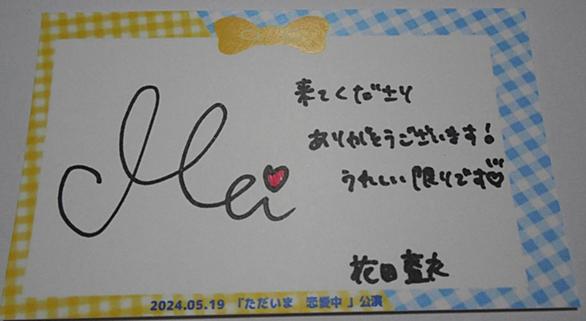 Mei
来てくださり
ありがとうございます!
うれしい限りです♡
花田藍衣
2024.05.19 「ただいま 恋愛中」公演